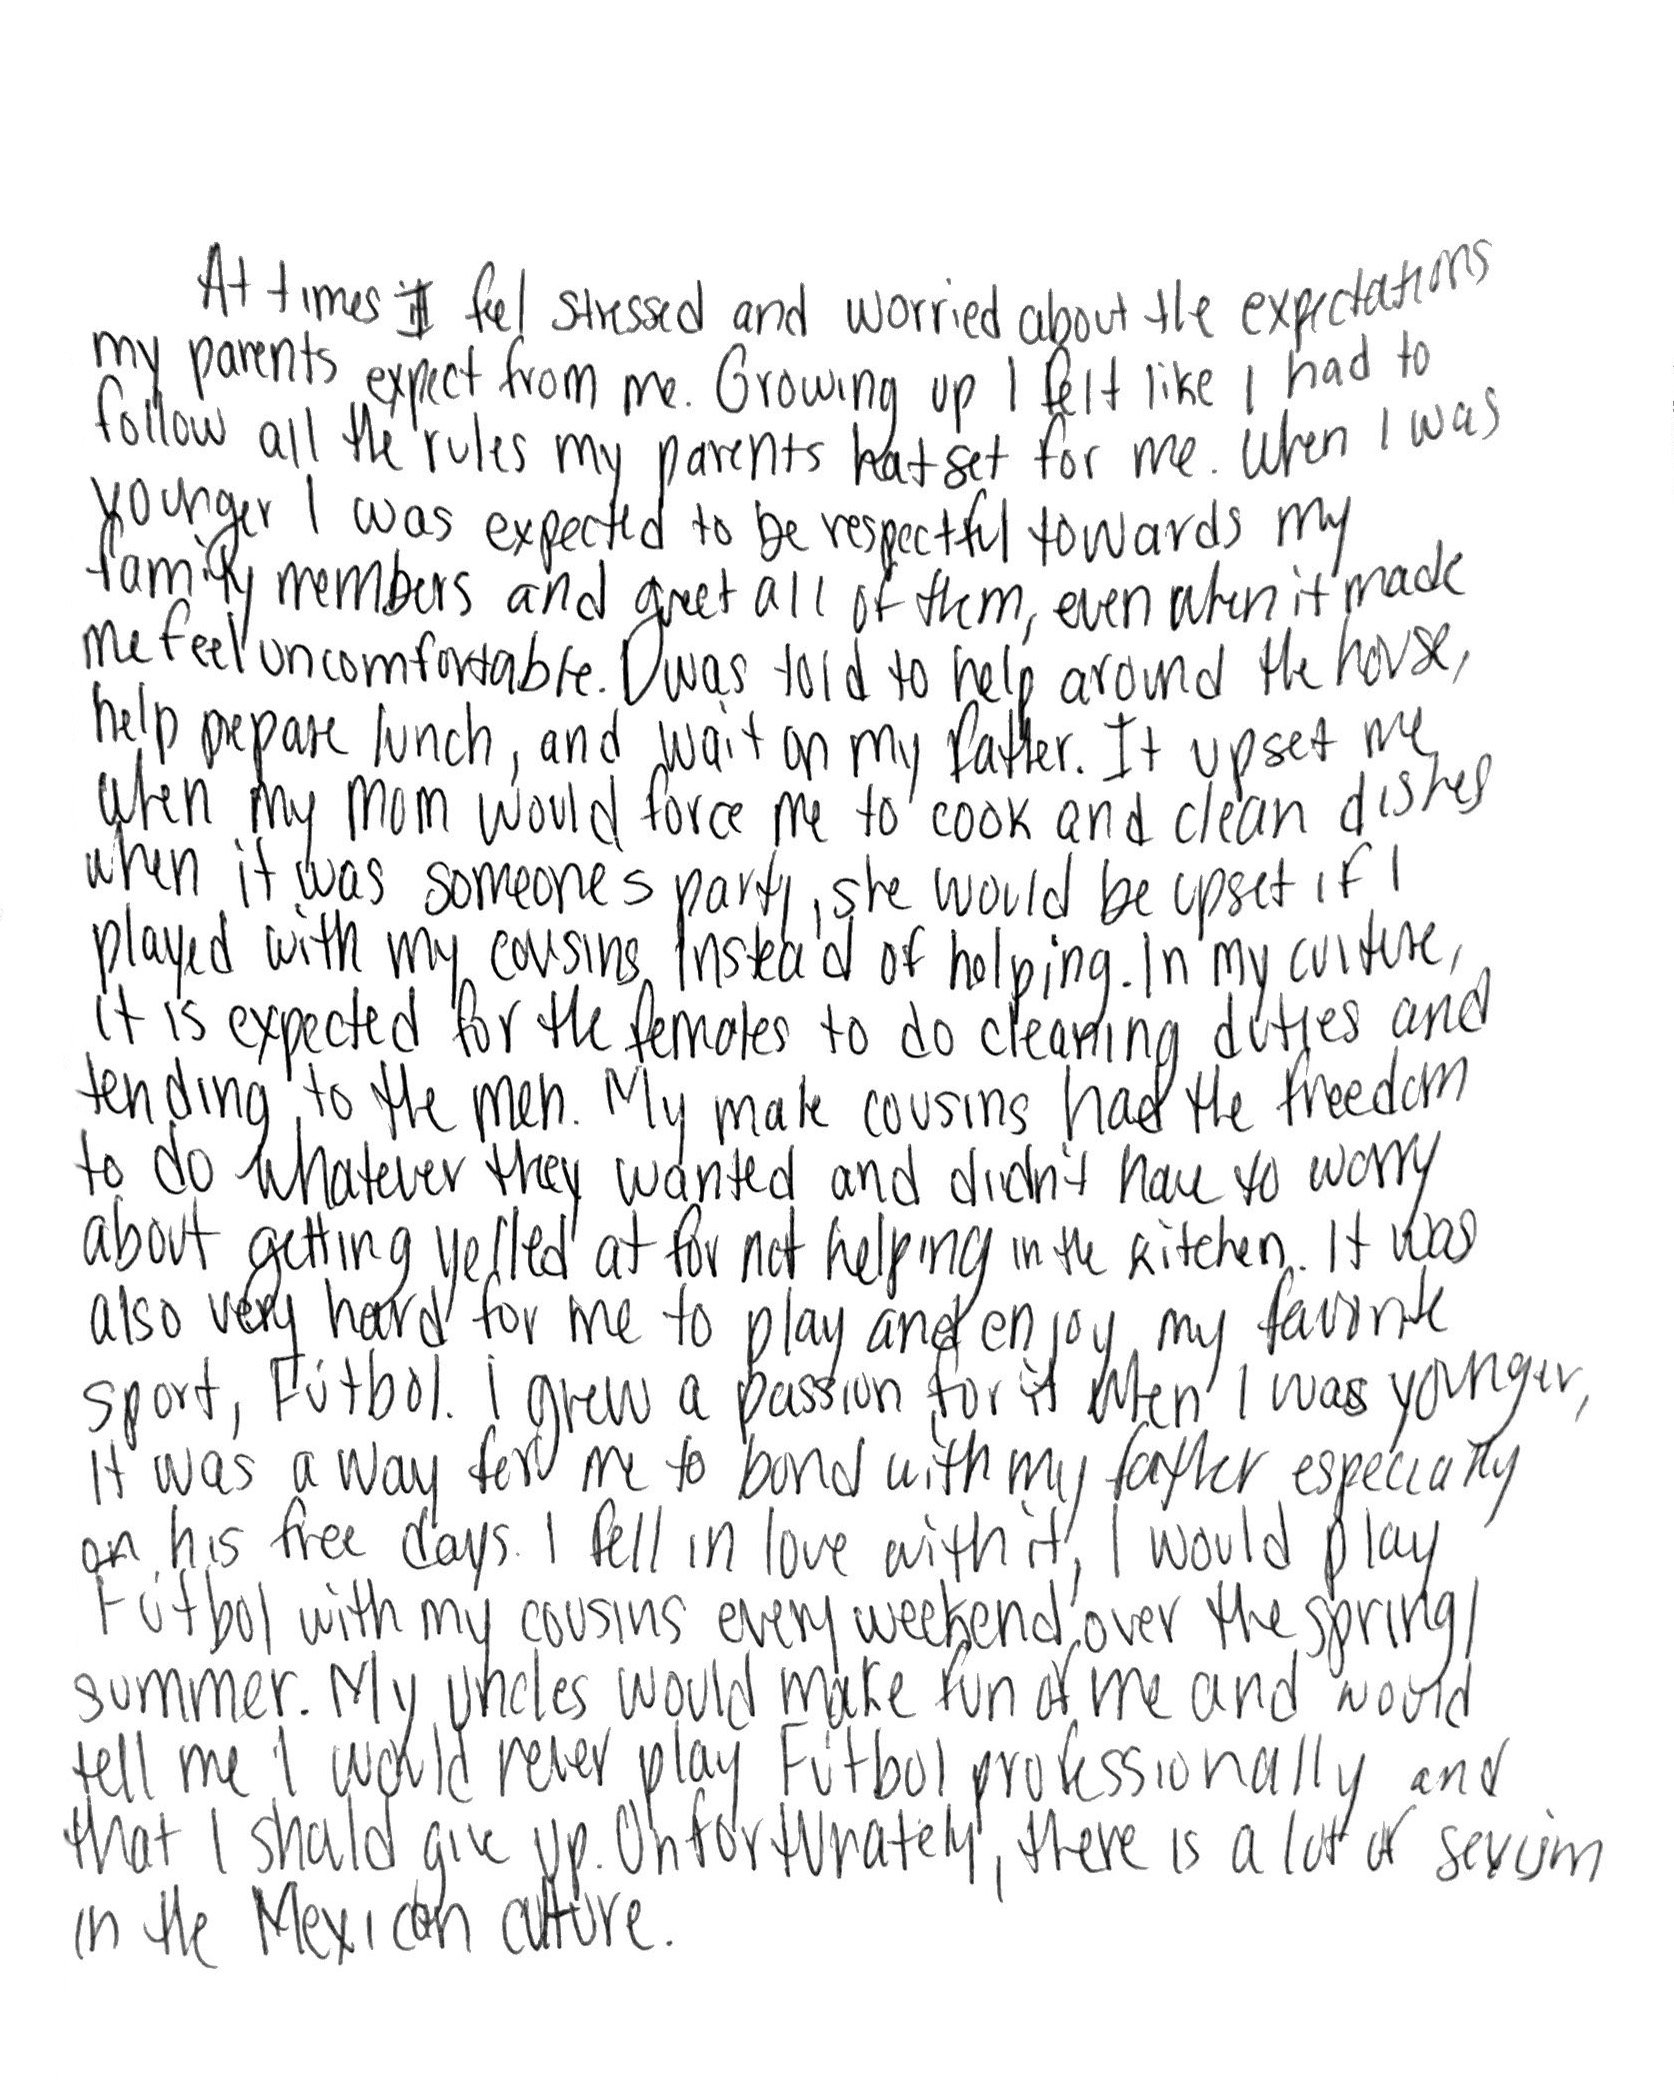 At times I feel stressed and worried about the expectations
my parents expect from me. Growing up I felt like I had to
follow all the rules my parents hat set for me. When I was
younger I was expected to be respectful towards my
family members and greet all of them, even when it made
me feel uncomfortable. I was told to help around the house,
help prepare lunch, and wait on my father. It upset me
when my mom would force me to cook and clean dishes
when it was someones party, she would be upset if I
played with my cousins instead of helping. In my culture,
it is expected for the females to do cleaning duties and
tending to the men. My male cousins had the freedom
to do whatever they wanted and didn't have to worry
about getting yelled at for not helping in the kitchen. It was
also very hard for me to play and enjoy my favorite
sport, Fútbol. I grew a passion for it when I was younger,
it was a way for me to bond with my father especially
on his free days. I fell in love with it, I would play
Fútbol with my cousins every weekend over the spring/
summer. My uncles would make fun of me and would
tell me I would never play Fútbol professionally and
that I should give up. Unfortunately, there is a lot of sexism
in the Mexican culture.